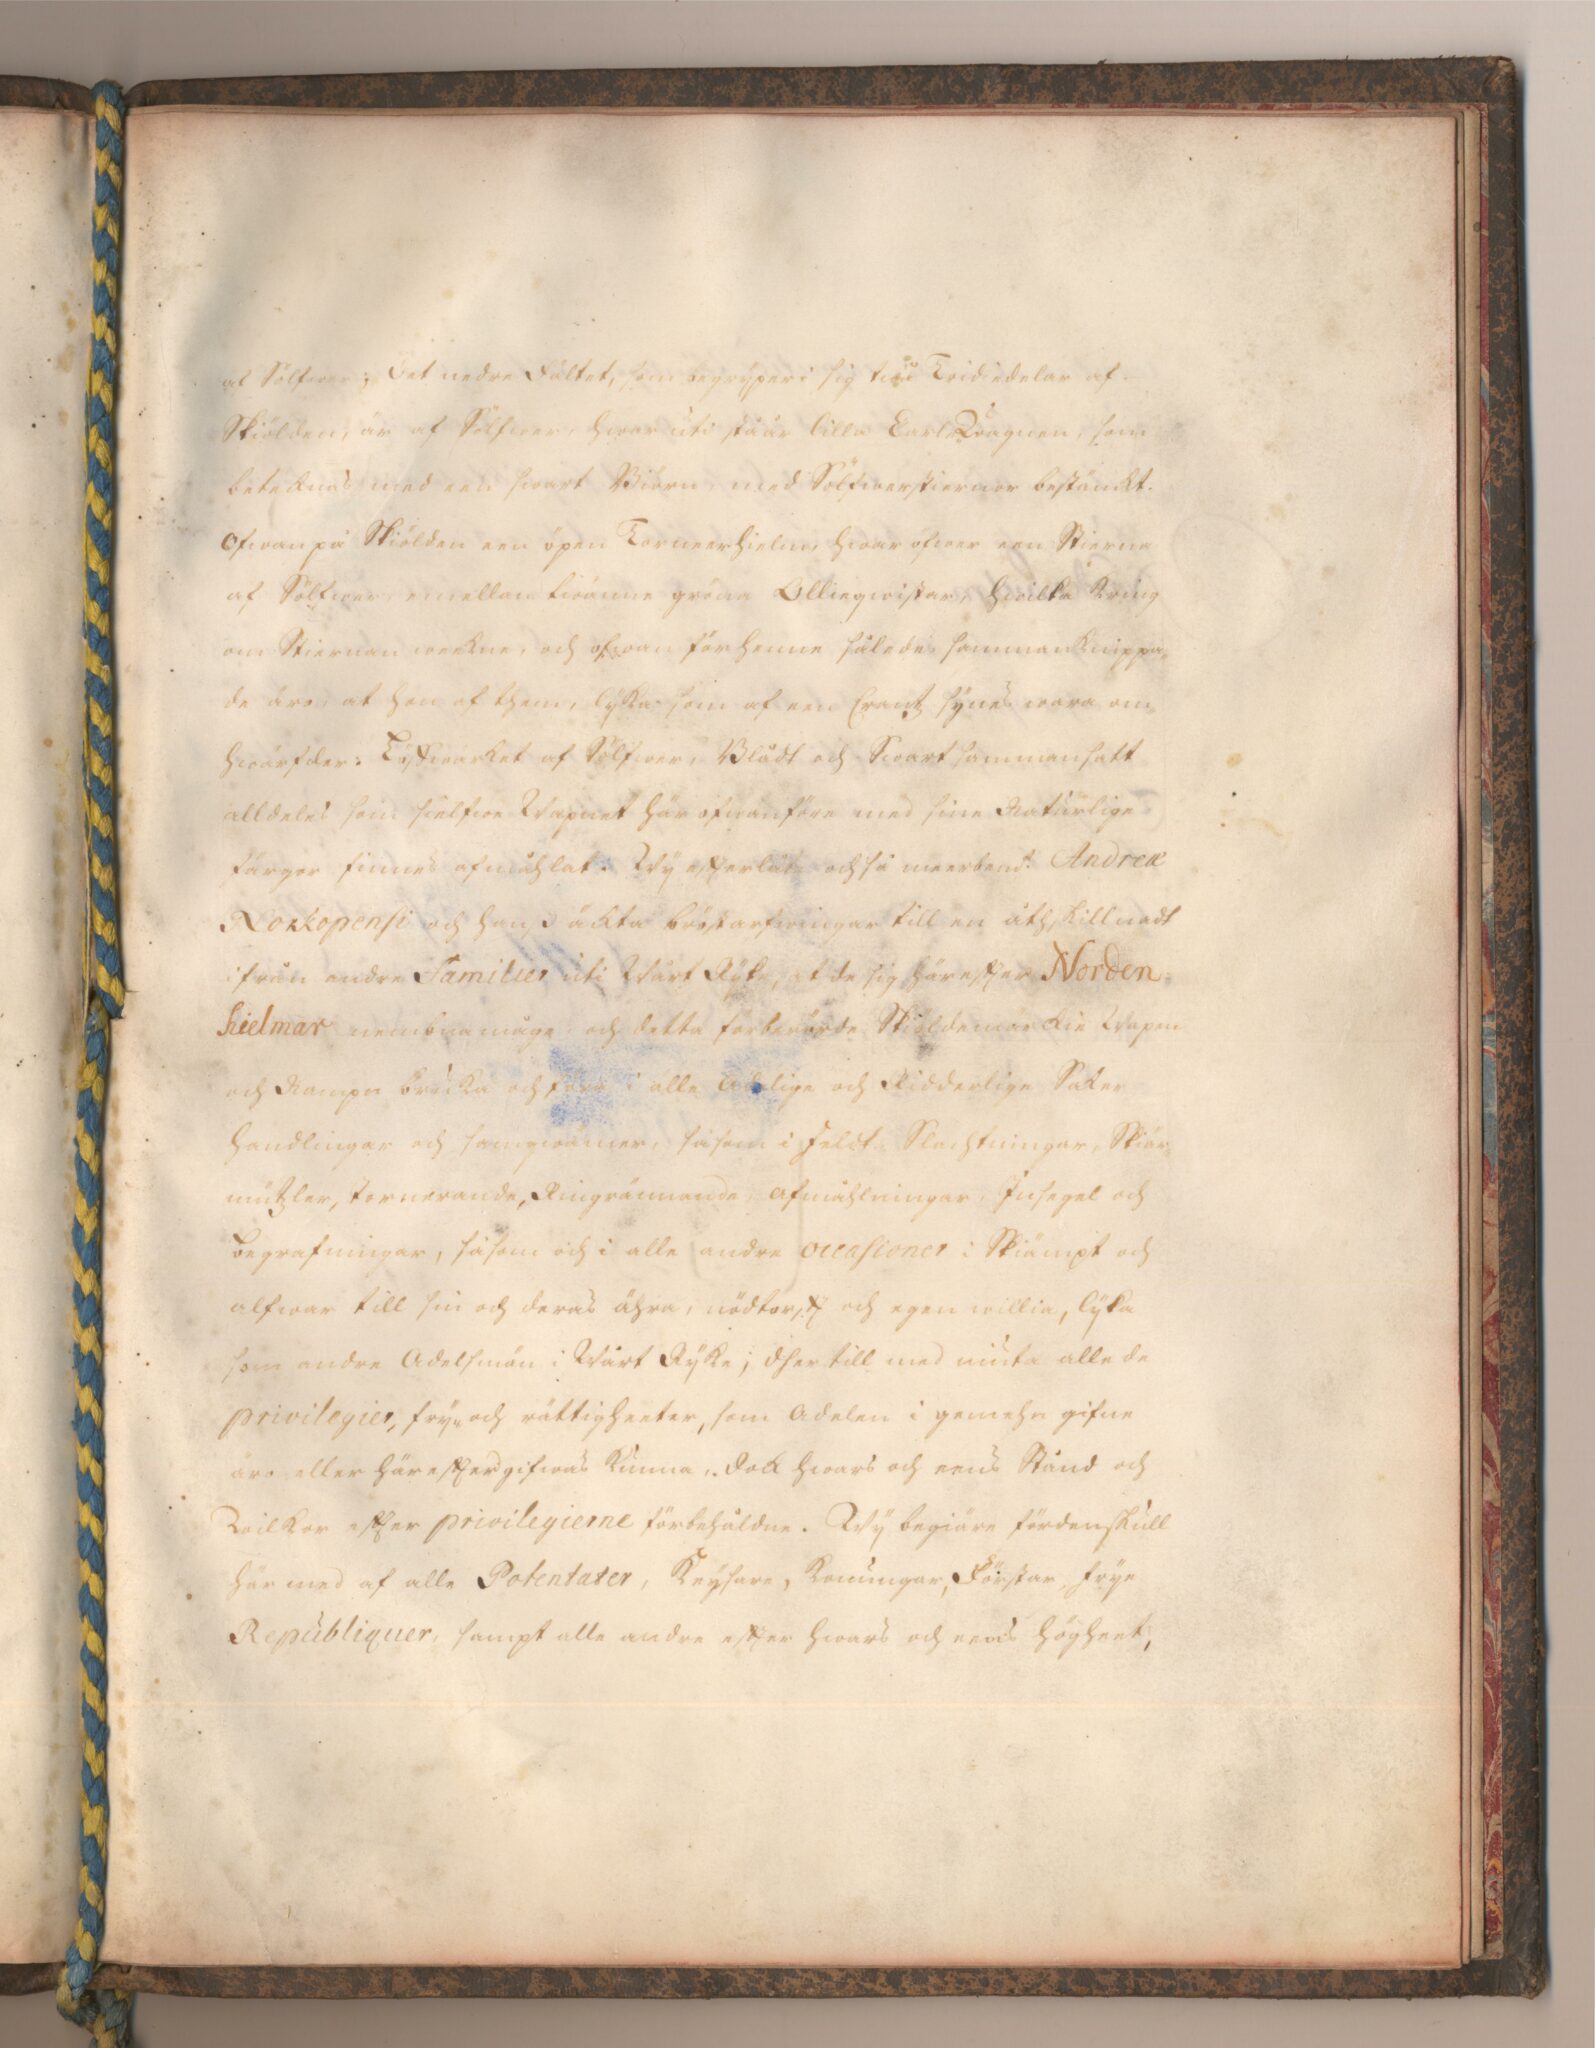 af Sölfwer; Det nedre Fältet, som begryper i sig twå Tridiedelar af
Skiölden, är af Sölfwer, hwar uti står lilla CarlsWagnen, som
betecknas med een swart Biörn, med Sölfwerstiernor bestänckt.
Ofwan på Skiölden een öpen Torneerhielm, hwar öfwer een Stierna
af Sölfwer, emellan twänne gröna Olliequistar, hwilka kring
om Stiernan weekne, och ofwan för henne således sammanknippa„
de äro, at hon af them, lyka som af een Crantz synes wara om„
hwärfder: Löfwärket af Sölfwer, Blådt och Swart sammansatt
alldeles som sielfwe Wapnet här ofwanföre med sine Naturlige
färgor finnes afmåhlat. Wy efterlåte ochså meerbem:t Andreæ
Norkopensi och hans äkta bröstarfwingar till en åthskillnadt
ifrån andre Familier uti Wårt Ryke, at de sig härefter Norden„
hielmar nembna måge och detta förberörde Skiöldemärkie Wapen
och Nampn bruka och föra i alle Adelige och Ridderlige Saker
handlingar och samqwämer, såsom i Feldt Slachtningar, Skiär„
mützler, tornerande, Ringrännande, afmåhlningar, Insegel och
begrafningar, såsom och i alle andre occasioner i Skiämpt och
alfwar till sin och deras ähra, nödtorft och egen willia, lyka
som andre Adelsmän i Wårt Ryke; dher till med niuta alle de
privilegier, fry„ och rättigheeter, som Adelen i gemehn gifne
äro eller härefter gifwas kunna, dock hwars och eens Stånd och
Wilkor efter privilegierne förbehåldne. Wy begiäre fördenskull
här med af alle Potentater, Keysare, Konungar, Förstar, frye
Republiquer, sampt alle andre efter hwars och eens högheet,